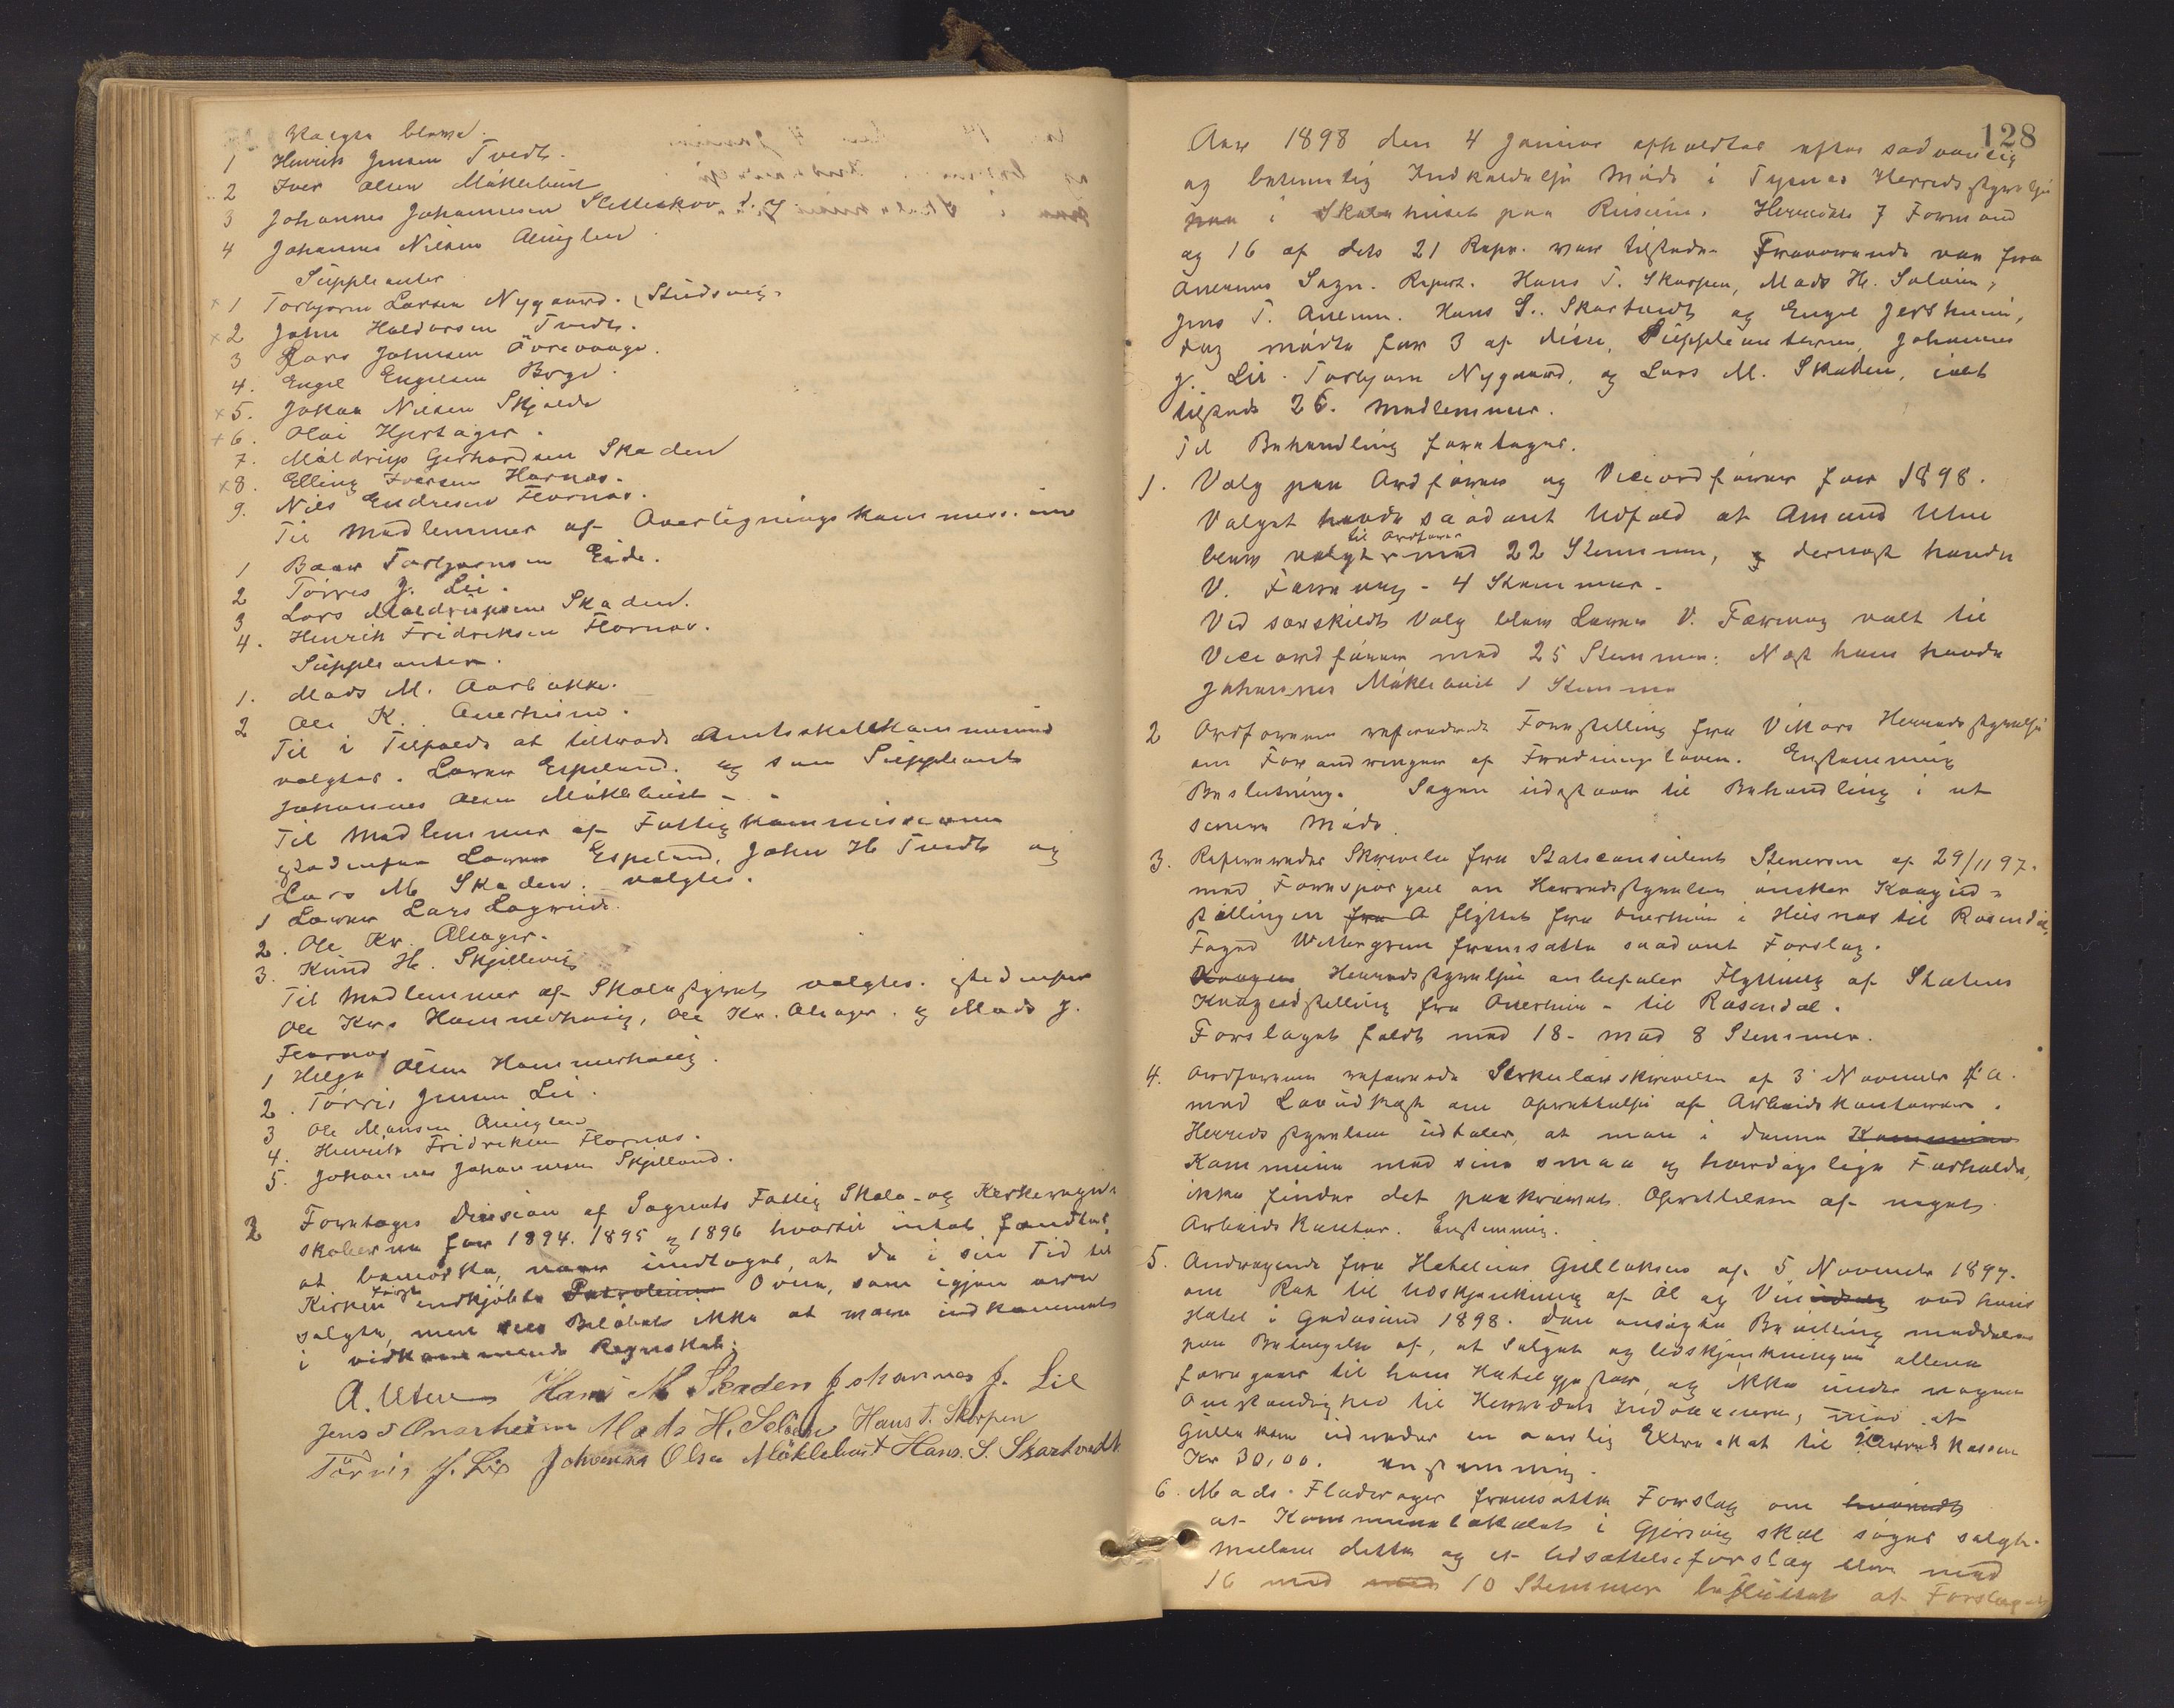 Valgte blev.
1 Henrik Jensen Tvedt.
2 Iver Olsen Møklebust
3 Johannes Johannesen Sletteskov d. y
4 Johannes Nilsen Aluglen
Suppleanter
x 1 Torbjørn Larsen Nygaard. Studsvig.
x 2 John Haldorsen Tvedt.
3 Lars Johnsen Øvrevaage.
4. Engel Engelsen Berge.
x 5. Johan Nilsen Skjelde
x 6. Olai Hjertager.
7. Maldrup Gerhardsen Skaden
x 8. Elling Iversen Hornæs.
9. Nils Endresen Flornæs.
Til Medlemmer af Overligningskommissionen
1 Baar Torbjørnsen Eide.
2 Tørres J. Lie.
3 Lars Maldrupsen Skaden.
4. Henrik Fridriksen Flornæs.
Suppleanter.
1. Mads M. Aarbakke.
2 Ole K. Onerheim.
Til i Tilfælde at tiltræde Amtsskattekommisionen
valgtes. Lærer Espeland. og som Suppleant
Johannes Olsen Møklebust
Til Medlemmer af Fattigkommissionen
istedenfor Lærer Espeland, John H Tvedt og
Lars M Skaden. valgtes.
1 Lærer Lars Legreid.
2. Ole Kr. Alsager.
3. Knud H. Skjellevig
Til Medlemmer af Skolestyret valgtes. istedenfor
Ole Krs Hammerhaug, Ole Kr. Alsager. og Mads J.
Flornæs
1 Helge Olsen Hammerhaug.
2. Tørris Jensen Lie.
3 Ole Monsen Aluglen
4. Henrik Fridriksen Flornæs.
5. Johannes Johannesen Skjelland.
2 Foretoges Decision af Sognets Fattig Skole- og Kirkeregn-
skaberne for 1894. 1895 og 1896 hvortil intet fandtes
at bemærke, undtoges, at da i sin Tid til
Kirken først indkjøbte Petroleums Ovne, som igjen ere
solgte, men sees Beløbet ikke at være indkommet
i vidkommende Regnskab.
A. Uten Hans M Skaden Johannes J. Lie
Jens T Onarheim Mads H. Seløen Hans T. Skorpen
Tørris J. Lie Johannes Olsen Møklebust Hans. S. Skartvedt
128
Aar 1898 den 4 Januar afholdtes efter sædvanlig
og betimelig Indkaldelse Møde i Tysnes Herredsstyrelse
paa i Skolehuset paa Reiseim. Herredets 7 Formænd
og 16 af dets 21 Repr. var tilstede. Fraværende var fra
Onereims Sogn. Repræs. Hans T. Skorpen, Mads H. Seløen,
Jens T. Onereim. Hans S. Skartvedt og Engel Jersheim,
dog mødte for 3 af disse, Suppleanterne, Johannes
J. Lie. Torbjørn Nygaard, og Lars M. Skaden, ialt
tilstede 26. Medlemmer.
Til Behandling foretoges.
1. Valg paa Ordfører og Viceordfører for 1898.
Valget havde saadant Udfald at Amund Uten
til Ordfører
blev valgt med 22 Stemmer, og dernæst havde
V. Færøvig - 4 Stemmer.
Ved særskildt Valg blev Lærer V. Færøvig valt til
Viceordfører, med 25 Stemmer. Næst ham havde
Johannes Møklebust 1 Stemme
2 Ordføreren refererede Forestilling fra Vikørs Herredsstyrelse
om Forandringer af Fredningsloven. Enstemmig
Beslutning. Sagen udstaar til Behandling i et
senere Møde.
3. Refereredes Skrivelse fra Statsconsulent Stenersen af 29/11 97.
med Forespørgsel om Herredsstyrelsen ønsker Kvægud-
stillingen fra O flyttet fra Onerheim i Husnes til Rosendal.
Foged Wettergren fremsatte saadant Forslag.
Kvægen Herredsstyrelsen anbefaler Flytning af Statens
Kvægudstilling fra Onerheim - til Rosendal.
Forslaget faldt med 18 - mod 8 Stemmer.
4. Ordføreren refererede Cirkulærskrivelse af 3 November f. a.
med Lovudkast om Oprettelse af Arbeidskontorer.
Herredsstyrelsen udtaler, at man i denne Kommune
Kommune med sine smaa og hverdagslige Forholde,
ikke finder det paakrævet. Oprettelsen af noget
Arbeidskontor. Enstemmig.
5. Andragende fra Hoteleier Gullaksen af 5 November 1897.
om Ret til Udskjænkning af Øl og Vin ved hans
Hotel i Godøsund 1898. Den ansøgte Bevilling meddeles
paa Betingelse af, at Salget og Udskjænkningen allene
foregaar til hans Hotelgjæster, og ikke under nogen
Omstændighed til Herredets Indvaanere, mod at
Gullaksen udreder en aarlig Extraskat til Herredskassen
Kr 30,00. enstemmig.
6. Mads Fladerager fremsatte Forslag om
at Kommunelokalet i Gjersvig skal søges solgt.
mellem dette og et Udsættelsesforslag blev med
16 mod 10 Stemmer besluttet at Forslaget